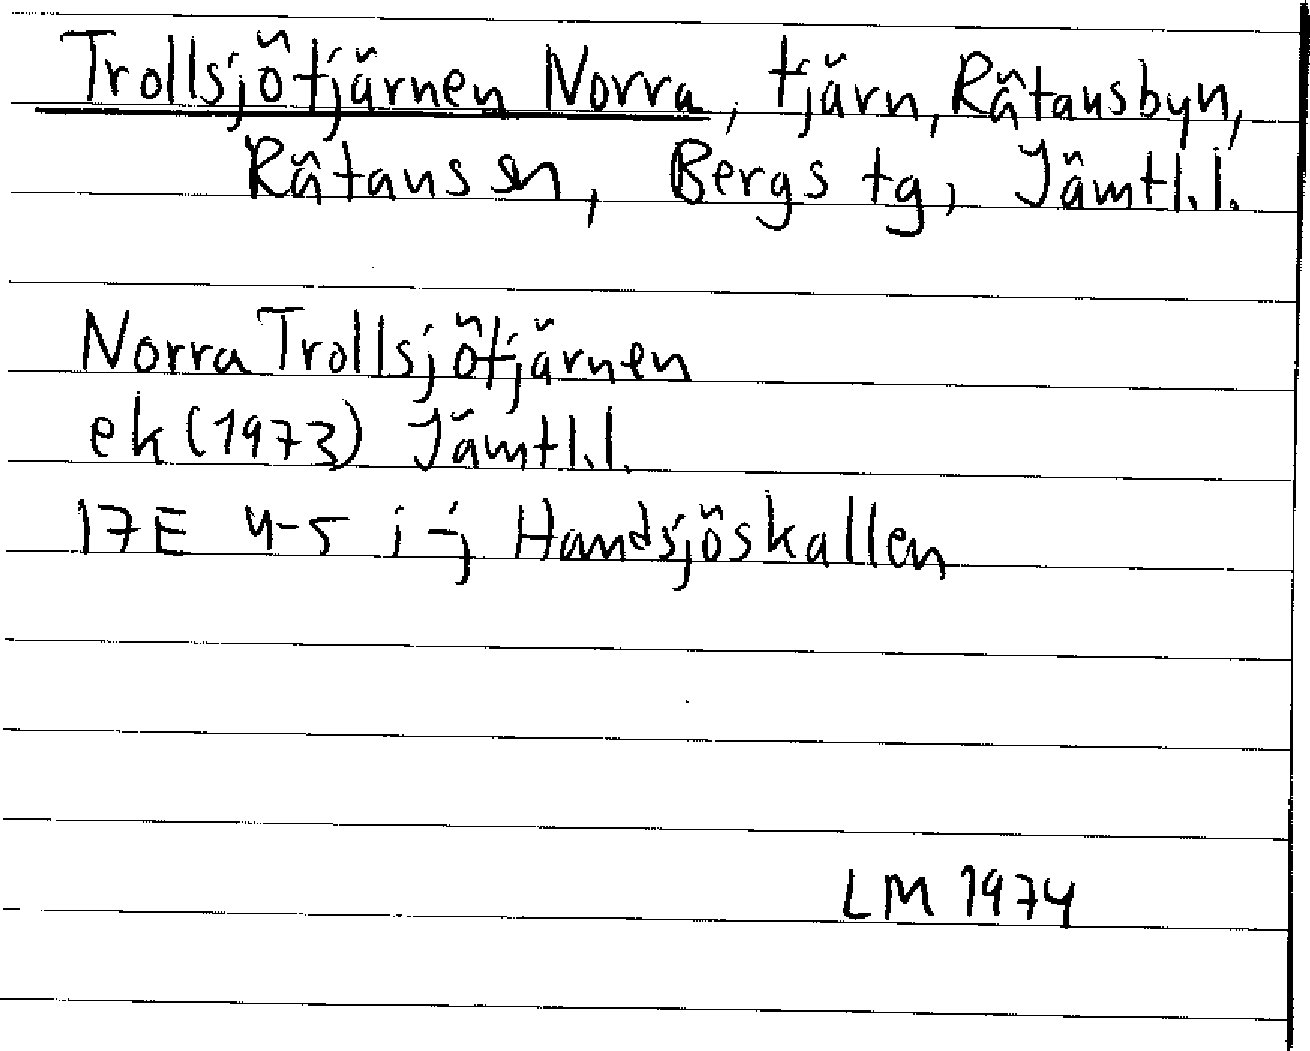 Trollsjötjärnen Norra, tjärn, Rätansbyn,
Rätans sn, Bergs tg, Jämtl.l.
Norra Trollsjötjärnen
ek (1973) Jämtl.l.
17E 4-5 i-j Handsjöskallen
LM 1974